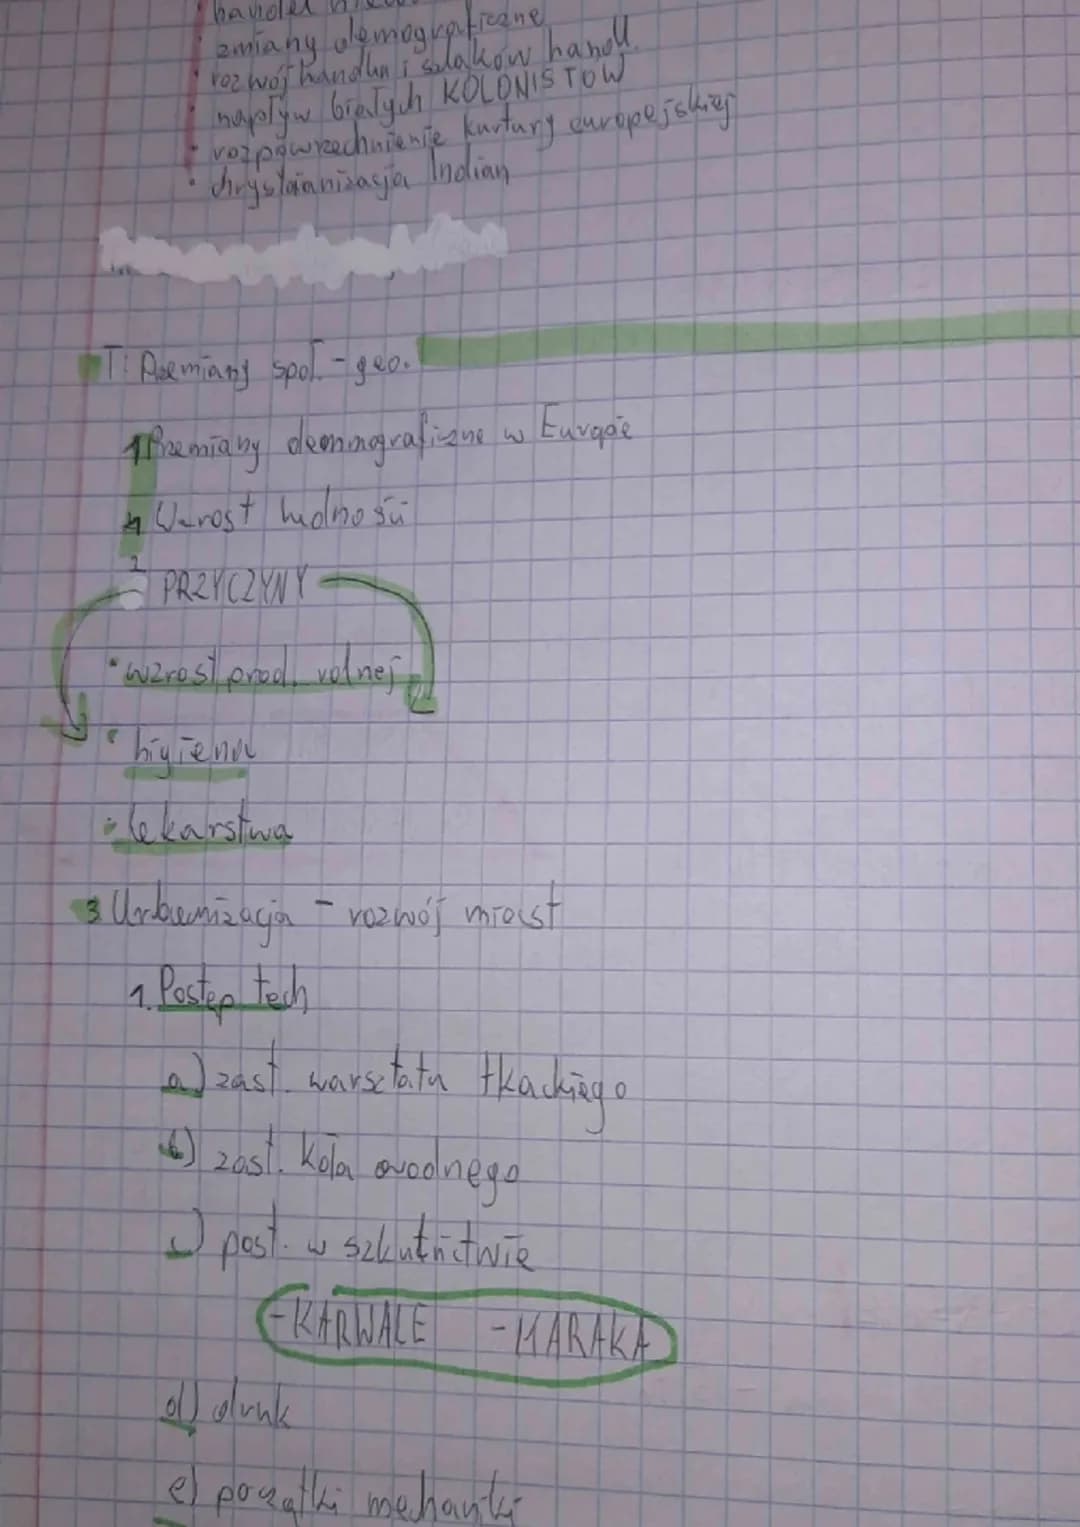 handel
zmiany demograficzne
rozwój handlu i szlaków handl.
napływ białych KOLONISTÓW
rozpowrzechnienie kurtury europejskiej
chrystianizacja Indian
T: Przemiany społ. - geo.
1 Przemiany demmograficzne w Europie
Wzrost ludności
2 PRZYCZYNY
• wzrost prod. rolnej
• higiena
• lekarstwa
3. Urbanizacja - rozwój miast
1. Postęp tech
a) zast. warsztatu tkackiego
b) zast. koła wodnego
c) post. w szkutnictwie
- KARWALE - KARAKA
d) druk
e) początki mechaniki